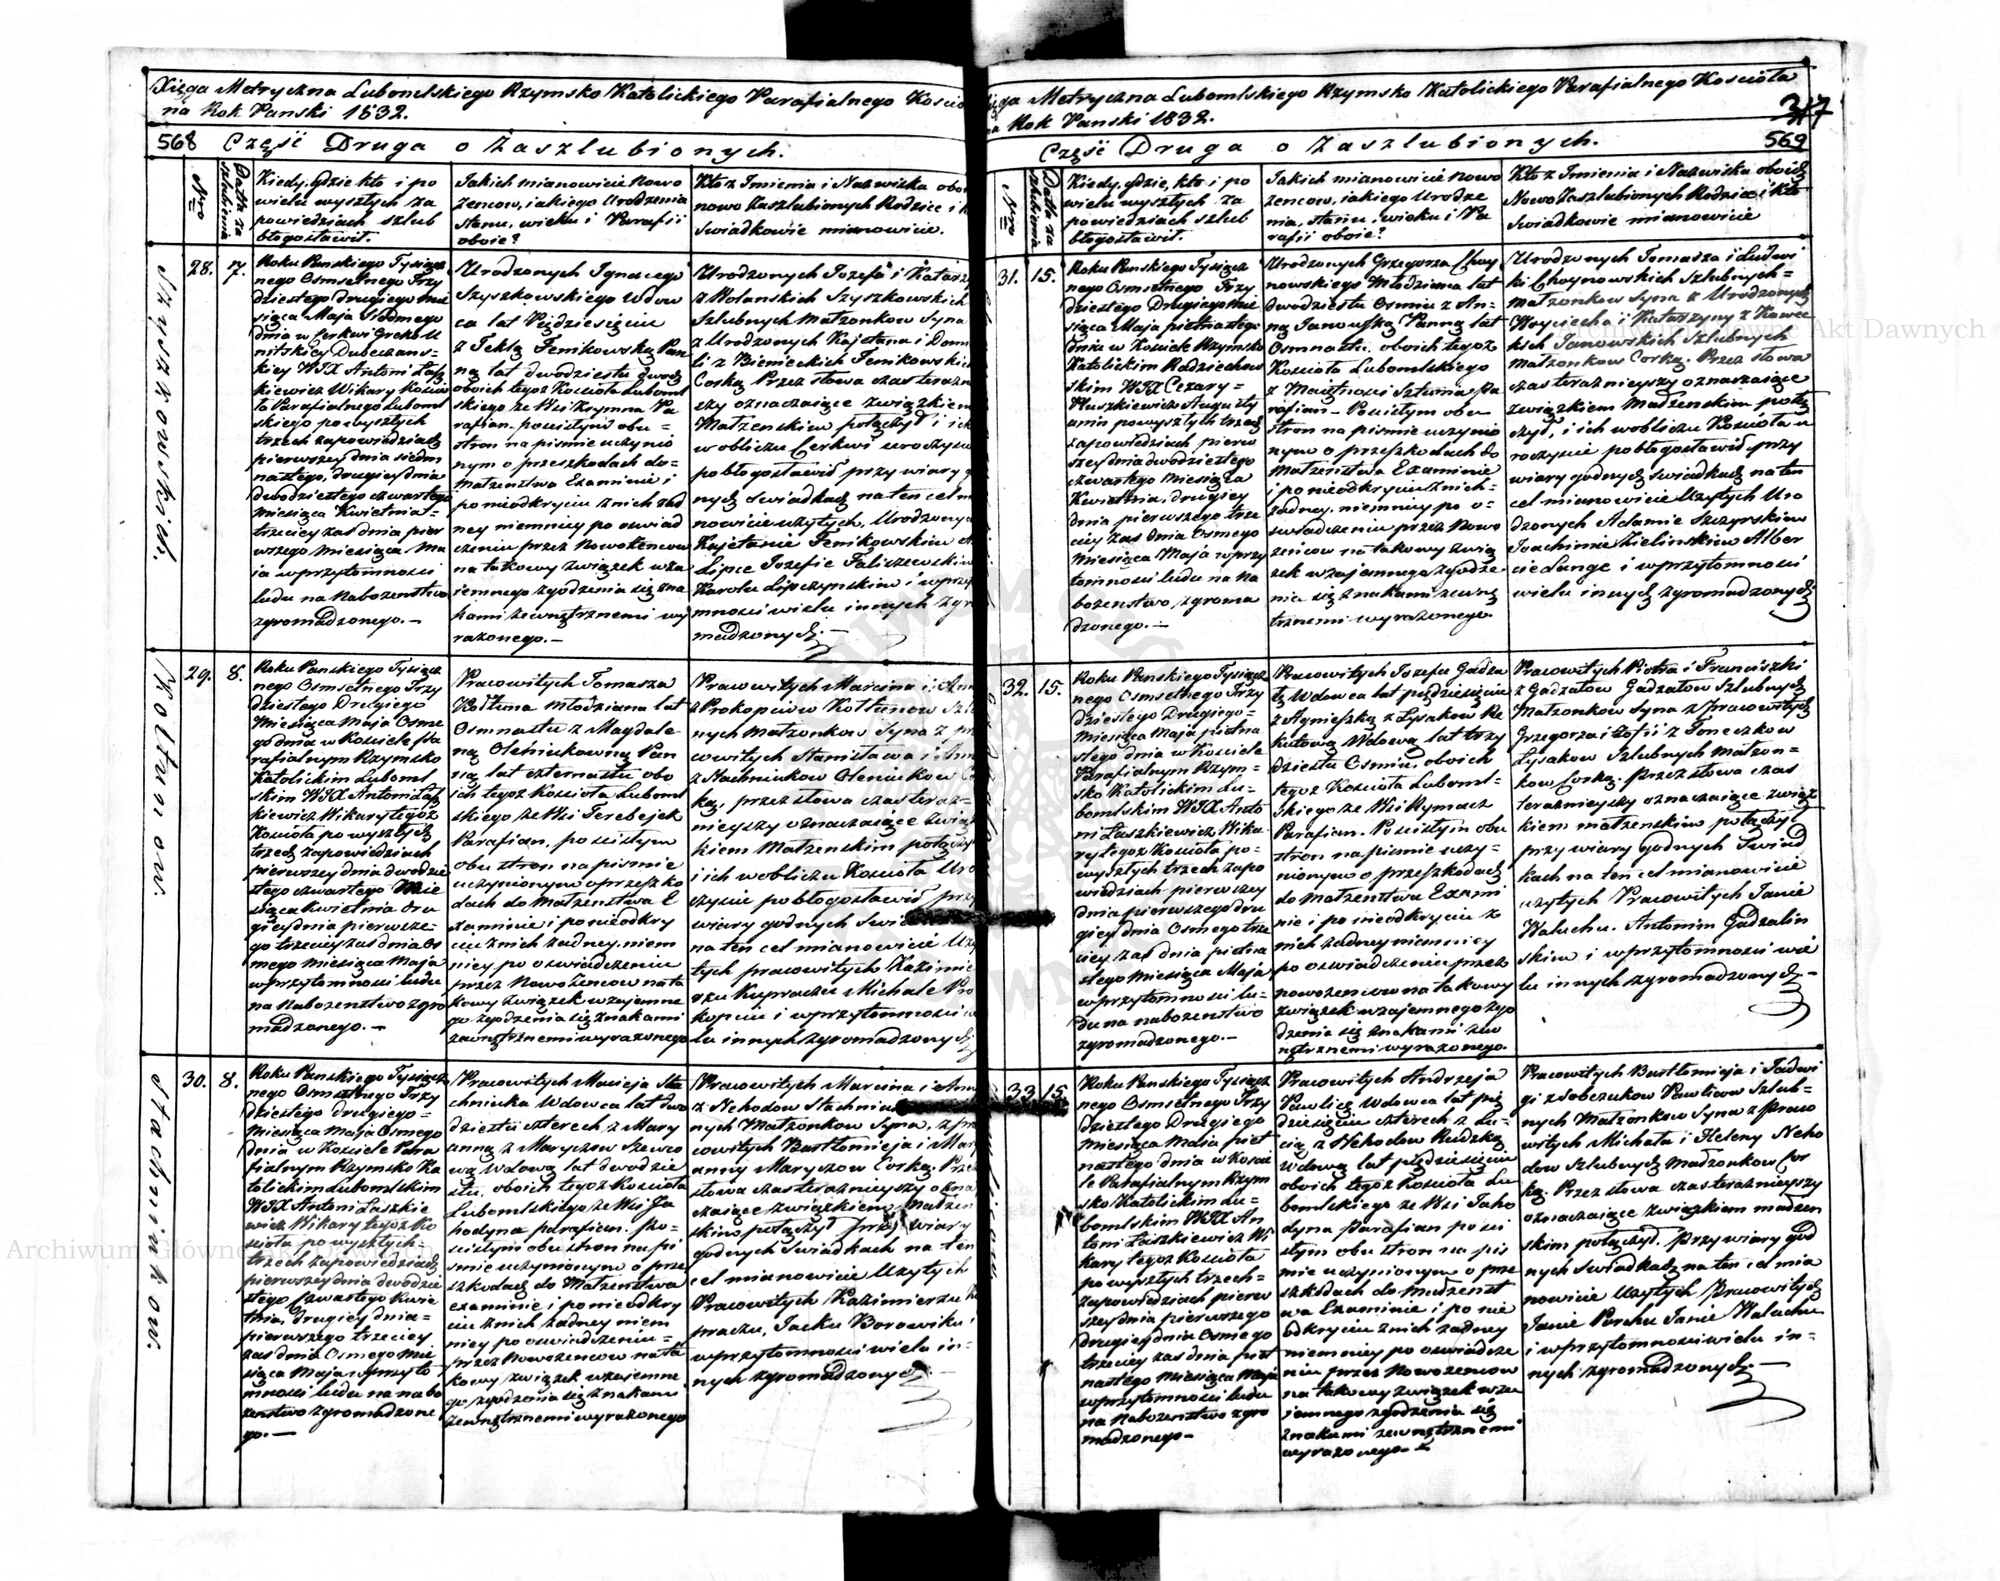 Xięga Metryczna Lubomlskiego Rzymsko Katolickiego Parafialnego Kościo
na Rok Panski 1832.
568 Część Druga o Zaszlubionych.
Nro
Datta za
szlubienia
Kiedy, gdzie kto i po
wielu wyszłych za
powiedziach szlub
błogosławił.
Jakich mianowicie Nowo
żencow, iakiego Urodzenia
stanu, wieku i Parafii
oboie?
Kto z Imienia i Nazwiska obo
nowo Zaszlubionych Rodzice i k
Swiadkowie mianowicie.
Szyszkowskich.
28. 7.
Roku Panskiego Tysiącz
nego Osmsetnego Trzy
dziestego drugiego mie
siąca Maja Siodmego
dnia w Cerkwi Grecko U
nitskiey
kiey WJX Antoni Łasz
kiewicz Wikary Koscio
ła Parafialnego Luboml
skiego po wyszłych
trzech zapowiedziach
pierwszey dnia siedm
nastego, drugiey dnia
dwudziestego czwartego
miesiąca Kwietnia
trzeciey zas dnia pier
wszego miesiąca Ma
ia w przytomnosci
ludu na Nabozenstwo
zgromadzonego.—
Urodzonych Ignacego
Szyszkowskiego wdow
ca lat Pięcdziesięciu
z Teklą Fenikowską Pan
ną lat dwudziestu dwoch
oboich tegoz Kosciola Luboml
skiego ze Wsi Krymna Pa
rafian. po scisłym obu=
stron na pismie uczynio
nym o przeszkodach do=
Małzenstwa Examinie i
po nieodkryciu z nich zad
ney niemniey po oswiad
czeniu przez Nowożencow
na takowy związek wza
iemnego zgodzenia się zna
kami zewnętrznemi wy
rażonego.—
Urodzonych Jozefa i Katarz
z Wolanskich Szyszkowskich
Szlubnych Małżonkow Syna
z Urodzonych Kajetana i Domi
li z Bienieckich Fenikowskich
Corką Przez słowa czas teraźn
szy oznaczaiące związkiem
Małżenskim połączył i ich
w obliczu Cerkwi uroczyści
pobłogosławił przy wiary g
nych Swiadkach na ten cel m
nowicie uzytych, Urodzony
Kajetanie Fenikowskim
Lipce Jozefie Faliszewskim
Karolu Lipczynskim i w przy
mnosci wielu innych zgro
madzonych.—
Kołtunow.
29. 8.
Roku Panskiego Tysiącz
nego Osmsetnego Trzy
dziestego Drugiego
Miesiąca Maja Osme
go dnia w Kosciele Pa
rafialnym Rzymsko
Katolickim Luboml
skim WJX Antoni Łasz
kiewicz Wikary tegoż
Kosciola po wyszłych
trzech zapowiedziach
pierwszey dnia dwudzie
stego czwartego Mie
siąca Kwietnia dru
giey dnia pierwsze=
go trzeciey zas dnia Os
mego miesiąca Maja
w przytomnosci ludu
na Nabozenstwo zgro
madzonego.—
Pracowitych Tomasza
Kołtuna młodziana lat
Osmnastu z Magdale
ną Oleniukowną Pan
ną lat czternastu obo
ich tegoż Kosciola Luboml
skiego ze Wsi Terebejek
Parafian, po scisłym
obu stron na pismie
uczynionym o przeszko
dach do Małzenstwa E
xaminie i po nieodkry
ciu z nich żadney, niem
niey po oswiadczeniu
przez Nowożencow na ta
kowy związek wzajemne
go zgodzenia się znakami
zewnętrznemi wyrażonego
Pracowitych Marcina i Ann
z Prokopciow Kołtunow Szlu
nych Małzonkow Syna z pr
cowitych Stanisława i Ann
z Stachniukow Oleniukow C
ką, przez słowa czas teraz=
nieyszy oznaczaiące związ
kiem Małzenskim połączy
i ich w obliczu Kosciola Uro
czyscie pobłogosławił przy
wiary godnych Swi
na ten cel mianowicie Uży
tych pracowitych Kazimie
rzu Kupraczu Michale Pro
kopciu i w przytomnosci w
lu innych zgromadzonych
Stachniukow.
30. 8.
Roku Panskiego Tysiącz
nego Osmsetnego Trzy
dziestego drugiego=
miesiąca Maja Osmego
dnia w Kosciele Para
fialnym Rzymsko Ka
tolickim Lubomlskim
WJX Antoni Łaszkie
wicz Wikary tegoz Ko
sciola po wyszłych
trzech zapowiedziach
pierwszey dnia dwudzie
stego Czwartego Kwie
tnia, drugiey dnia=
pierwszego trzeciey
zas dnia Osmego Mie
siąca Maja w przyto
mnosci ludu na nabo
zenstwo zgromadzone
go.—
Pracowitych Macieja Sta
chniuka Wdowca lat dwu
dziestu czterech z Mary
anną z Maryczow Szewco
wą Wdową lat dwudzie
stu, oboich tegoż Kosciola
Lubomlskiego ze Wsi Ja
hodyna parafian. po=
scisłym obu stron na pi
smie uczynionym o prze
szkodach do Małzenstwa
examinie, i po nieodkry
ciu z nich zadney niem
niey po oswiadczeniu=
przez Nowożencow na ta
kowy związek wzajemne
go zgodzenia się znakami
zewnętrznemi wyrażonego
Pracowitych Marcina i Ann
z Nehodow Stachniu
nych Małzonkow Syna, z pra
cowitych Bartłomieja i Mary
anny Maryczow Corką. Przez
słowa czas teraznieyszy ozna
czaiące związkiem Małzen
skim połączył przy wiary
godnych Swiadkach na ten
cel mianowicie Użytych
Pracowitych Kazimierzu Ku
praczu, Jacku Borowiku i
w przytomnosci wielu in=
nych zgromadzonych
ięga Metryczna Lubomlskiego Rzymsko Katolickiego Parafialnego Kosciola
na Rok Panski 1832.
317
Część Druga o Zaszlubionych. 569
Nro
Datta za
szlubienia
Kiedy, gdzie, kto i po
wielu wyszłych za
powiedziach szlub
błogosławił.
Jakich mianowicie nowo
żencow, iakiego Urodze
nia, stanu, wieku i Pa
rafii oboie?
Kto z Imienia i Nazwiska oboich
Nowo Zaszlubionych Rodzice i kto
Swiadkowie mianowicie
31. 15.
Roku Panskiego Tysiącz
nego Osmsetnego Trzy
dziestego Drugiego mie
siąca Maja pietnastego
dnia w Kosciele Rzymsko
Katolickim Radziechow
skim WJX Cezary=
Hluszkiewicz Augusty
anin po wyszłych trzech
zapowiedziach pierw
szey dnia dwudziestego
czwartego Miesiąca
Kwietnia, drugiey
dnia pierwszego trze
ciey zas dnia Osmego
Miesiąca Maja w przy
tomnosci ludu na Na
bozenstwo, zgroma
dzonego.—
Urodzonych Grzegorza Choy
nowskiego Młodziana lat
dwudziestu Osmiu z An=
ną Janowską Panną lat
Osmnastu. oboich tegoż
Kosciola Lubomlskiego
z Maiętnosci Sztunia Pa
rafian— Po scisłym obu
stron na pismie uczynio
nym o przeszkodach do
Małzenstwa Examinie
i po nieodkryciu z nich=
zadney, niemniey po o=
swiadczeniu przez Nowo
żencow na takowy zwią
zek wzajemnego zgodze
nia się znakami zewnę
trznemi wyrażonego.
Urodzonych Tomasza i Ludwi
ki Choynowskich Szlubnych=
Małżonkow Syna z Urodzonych
Woyciecha i Katarzyny z Kawec
kich Janowskich Szlubnych
Małzonkow Corką. Przez słowa
czas teraznieyszy oznaczaiące
związkiem Małżenskim połą
czył, i ich w obliczu Kosciola u
roczyscie pobłogosławił przy
wiary godnych swiadkach na ten
cel mianowicie Użytych Uro
dzonych Adamie Szczyrskim
Joachimie Zielinskim Alber
cie Lange i w przytomnosci
wielu innych zgromadzonych
32. 15.
Roku Panskiego Tysiącz
nego Osmsetnego Trzy
dziestego Drugiego=
Miesiąca Maja pietna
stego dnia w Kosciele
Parafialnym Rzym=
sko Katolickim Lu=
bomlskim WJX Anto
ni Łaszkiewicz Wika
ry tegoz Kosciola po=
wyszłych trzech zapo
wiedziach pierwszey
dnia pierwszego dru
giey dnia Osmego trze
ciey zas dnia pietna
stego Miesiąca Maja
w przytomnosci lu=
du na nabozenstwo
zgromadzonego.—
Pracowitych Jozefa Gadza
łę Wdowca lat pięcdziesięciu
z Agnieszką z Łysakow Re
kutową Wdową lat trzy
dziestu Osmiu, oboich
tegoż Kosciola Luboml=
skiego ze Wsi Rymacz
Parafian. Po scisłym obu
stron na pismie uczy=
nionym o przeszkodach
do Małzenstwa Exami
nie i po nieodkryciu z
nich zadney niemniey
po oswiadczeniu przez
nowożencow na takowy
związek wzajemnego zgo
dzenia się znakami zew
nętrznemi wyrażonego.
Pracowitych Piotra i Franciszki
z Gadzałow Gadzałow Szlubnych
Małzonkow Syna z Pracowitych
Grzegorza i Zofii z Toneczkow
Łysakow Szlubnych Małzon=
kow Corką. Przez słowa czas
teraznieyszy oznaczaiące związ
kiem małzenskim połączył
przy wiary godnych Swiad
kach na ten cel mianowicie
użytych Pracowitych Janie
Waluchu. Antonim Gadzalin
skim i w przytomnosci wie
lu innych zgromadzonych.—
33 15.
Roku Panskiego Tysiącz
nego Osmsetnego Trzy
dziestego Drugiego
Miesiąca Maia piet
nastego dnia w Kosci
le Parafialnym Rzym
sko Katolickim Lu=
bomlskim WJX An
toni Łaszkiewicz Wi
kary tegoz Kosciola
po wyszłych trzech=
zapowiedziach pierw
szey dnia pierwszego
drugiey dnia Osmego
trzeciey zas dnia piet
nastego Miesiąca Maja
w przytomnosci ludu
na Nabozenstwo zgro
madzonego—
Pracowitych Andrzeja
Pawlicę Wdowca lat pię
dziesięciu czterech z Lu=
cią z Nehodow Rudzką
Wdową lat pięcdziesięciu
oboich tegoż Kosciola Lu
bomlskiego ze Wsi Jaho
dyna Parafian po sci
słym obu stron na pis
mie uczynionym o prze
szkodach do Małzenst
wa Examinie i po nie
odkryciu z nich żadney
niemniey po oswiadcze
niu przez Nowożencow
na takowy związek wza
iemnego zgodzenia się
znakami zewnętrznemi
wyrażonego.—
Pracowitych Bartłomieja i Jadwi
gi z Sobczukow Pawlicow Szlub=
nych Małżonkow Syna z Praco
witych Michała i Heleny Neho
dow Szlubnych Małzonkow Cor
ką. Przez słowa czas teraznieyszy
oznaczaiące związkiem małżen
skim połączył. Przy wiary god
nych Swiadkach na ten cel mia
nowicie Użytych Pracowitych
Janie Parchu Janie Waluchu
i w przytomnosci wielu in=
nych zgromadzonych.—
Archiwum Główne Akt Dawnych
Archiwum Główne Akt Dawnych